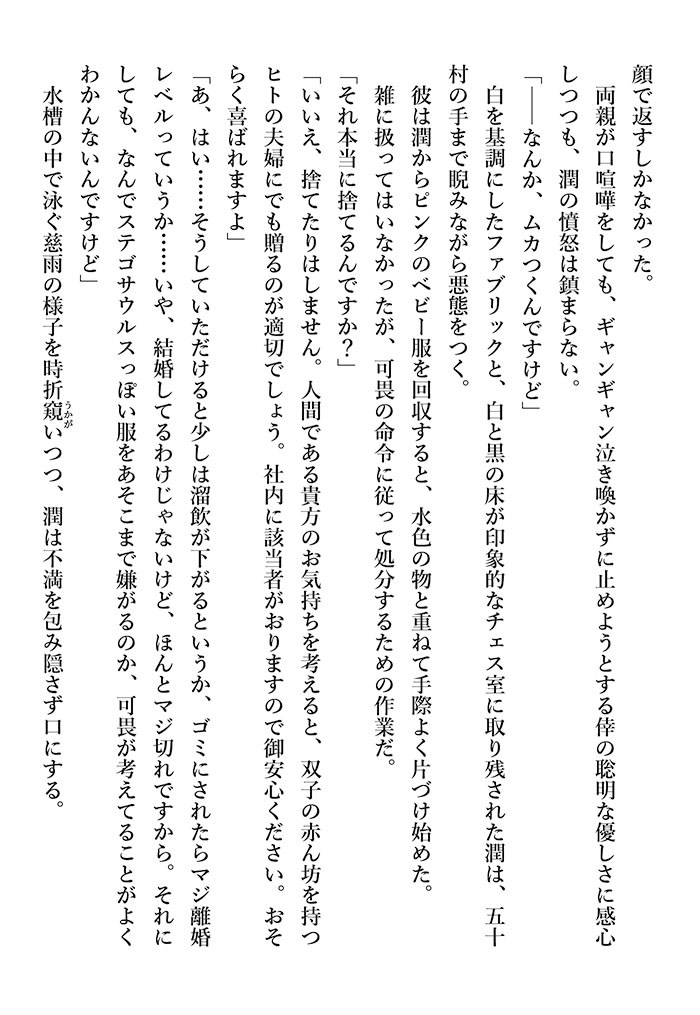 顔で返すしかなかった。
両親が口喧嘩をしても、ギャンギャン泣き喚かずに止めようとする倖の聡明な優しさに感心
しつつも、潤の憤怒は鎮まらない。
「――なんか、ムカつくんですけど」
白を基調にしたファブリックと、白と黒の床が印象的なチェス室に取り残された潤は、五十
村の手まで睨みながら悪態をつく。
彼は潤からピンクのベビー服を回収すると、水色の物と重ねて手際よく片づけ始めた。
雑に扱ってはいなかったが、可畏の命令に従って処分するための作業だ。
「それ本当に捨てるんですか？」
「いいえ、捨てたりはしません。人間である貴方のお気持ちを考えると、双子の赤ん坊を持つ
ヒトの夫婦にでも贈るのが適切でしょう。社内に該当者がおりますので御安心ください。おそ
らく喜ばれますよ」
「あ、はい……そうしていただけると少しは溜飲が下がるというか、ゴミにされたらマジ離婚
レベルっていうか……いや、結婚してるわけじゃないけど、ほんとマジ切れですから。それに
しても、なんでステゴサウルスっぽい服をあそこまで嫌がるのか、可畏が考えてることがよく
わかんないんですけど」
水槽の中で泳ぐ慈雨の様子を時折窺うかがいつつ、潤は不満を包み隠さず口にする。